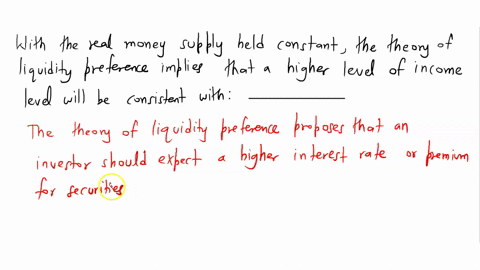 With the real money supply held constant, the theory of
liquidity preference implies that a higher level of income
level will be consistent with: __________
The theory of liquidity preference proposes that an
investor should expect a higher interest rate or premium
for securities